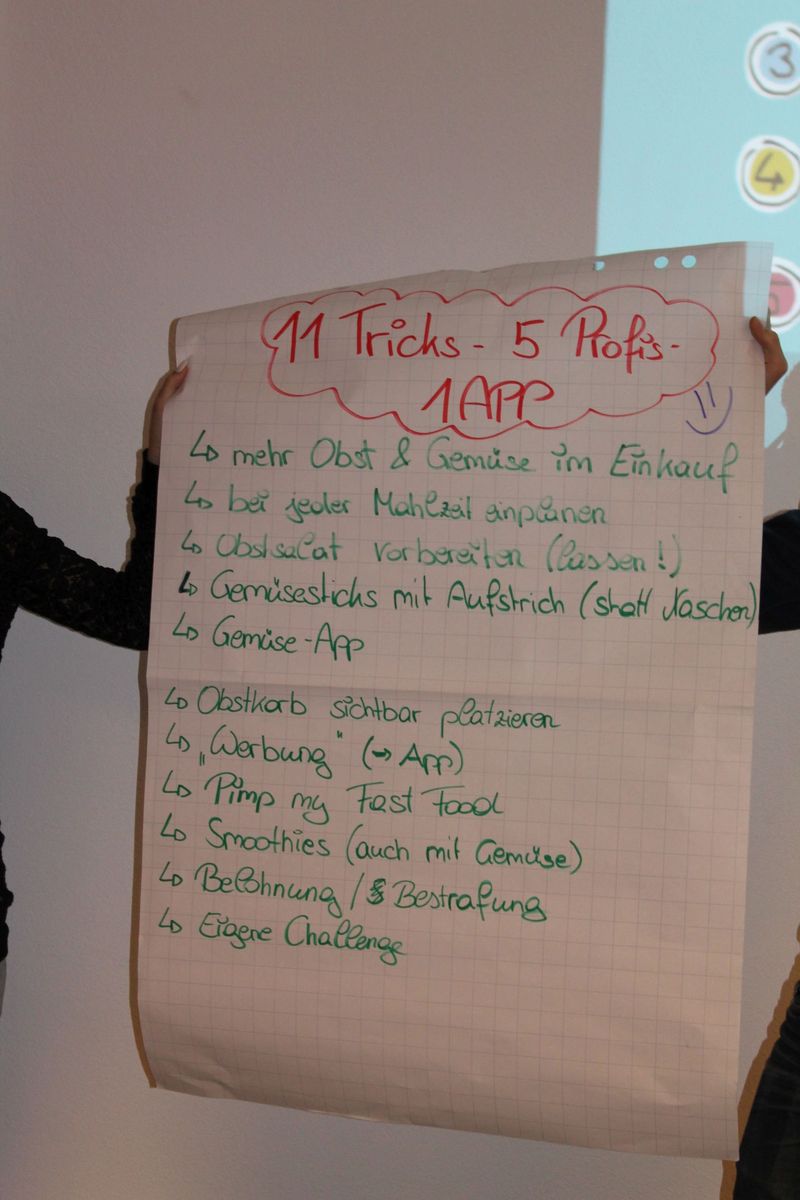 3
4
5
11 Tricks - 5 Profis -
1 APP
↳ mehr Obst & Gemüse im Einkauf
↳ bei jeder Mahlzeit einplanen
↳ Obstsalat vorbereiten (lassen!)
↳ Gemüsesticks mit Aufstrich (statt Naschen)
↳ Gemüse-App
↳ Obstkorb sichtbar platzieren
↳ „Werbung" (→ App)
↳ Pimp my Fast Food
↳ Smoothies (auch mit Gemüse)
↳ Belohnung / Bestrafung
↳ Eigene Challenge